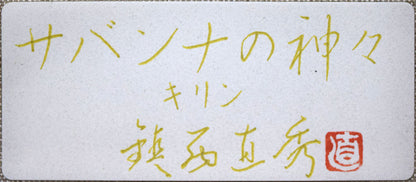 サバンナの神々
キリン
鎮西直秀
直